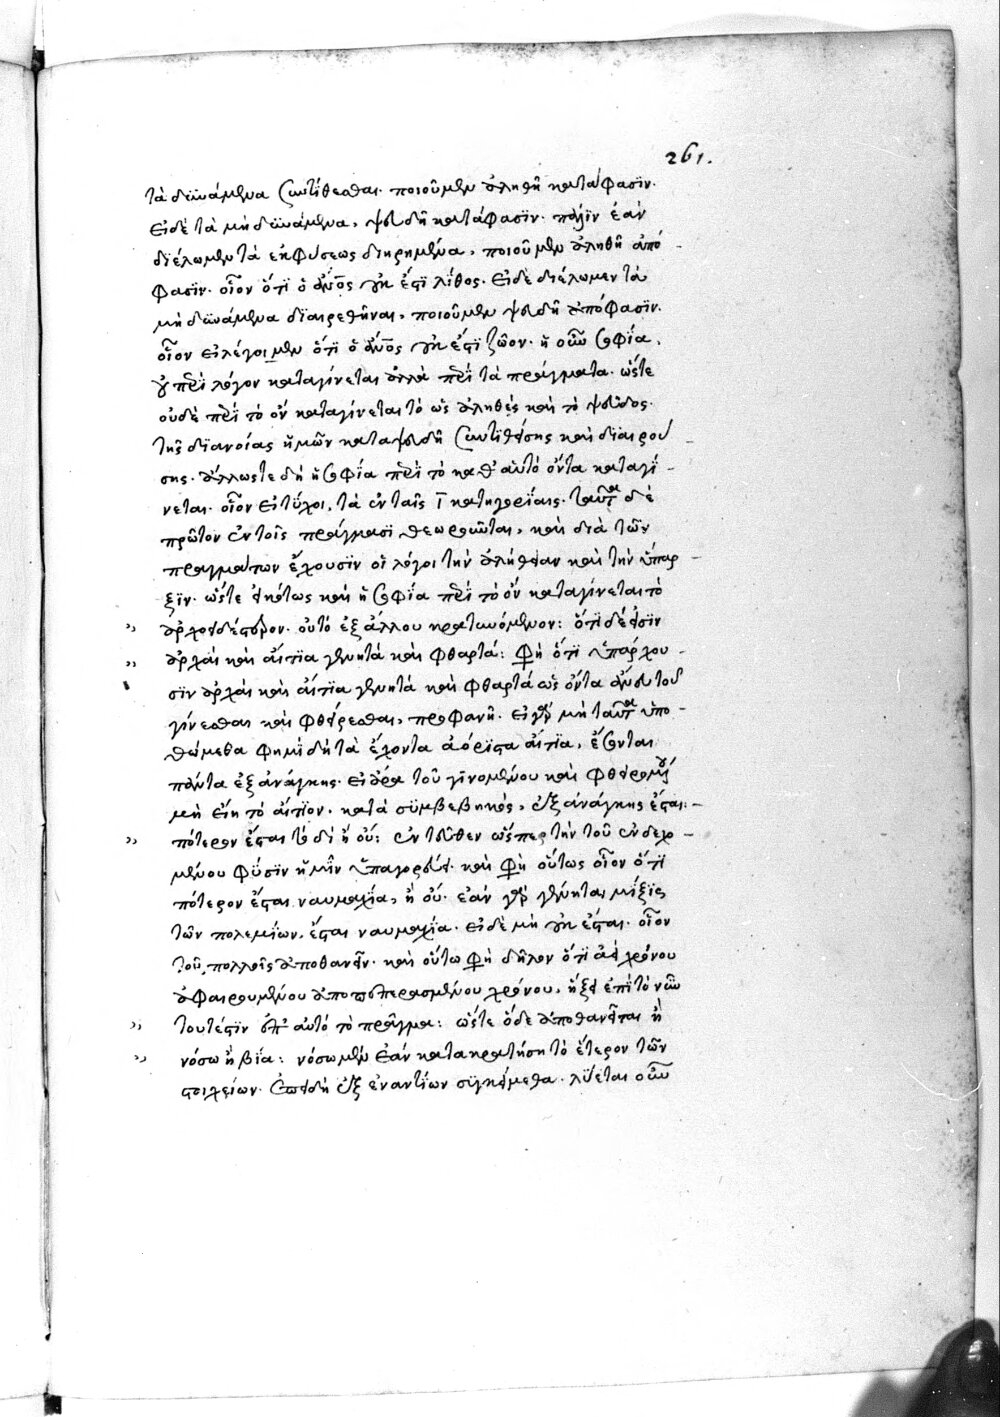 261.
τὰ δυνάμενα συντίθεσθαι. ποιοῦμεν ἀληθῆ κατάφασιν.
εἰ δὲ τὰ μὴ δυνάμενα, ψευδῆ κατάφασιν. πάλιν ἐὰν
διέλωμεν τὰ ἐκ φύσεως διῃρημένα, ποιοῦμεν ἀληθῆ ἀπό-
φασιν. οἷον ὅτι ὁ ἄνος οὐκ ἔστι λίθος. εἰ δὲ διέλωμεν τὰ
μὴ δυνάμενα διαιρεθῆναι, ποιοῦμεν ψευδῆ ἀπόφασιν.
οἷον εἰ λέγοιμεν ὅτι ὁ ἄνος οὐκ ἔστι ζῶον. ἡ οὖν σοφία,
οὐ περὶ λόγον καταγίνεται ἀλλὰ περὶ τὰ πράγματα. ὥστε
οὐδὲ περὶ τὸ ὂν καταγίνεται τὸ ὡς ἀληθὲς καὶ τὸ ψεῦδος.
τῆς διανοίας ἡμῶν καταψευδῆ συντιθείσης καὶ διαιρού-
σης. ἄλλωστε δὴ ἡ σοφία περὶ τὸ καθ' αὑτὸ ὄντα καταγί-
νεται. οἷον εἰ τύχοι, τὰ ἐν ταῖς ι κατηγορίαις. ταῦτα δὲ
πρῶτον ἐν τοῖς πράγμασι θεωροῦνται, καὶ διὰ τῶν
πραγμάτων ἔχουσιν οἱ λόγοι τὴν ἀλήθειαν καὶ τὴν ὕπαρ-
ξιν. ὥστε εἰκότως καὶ ἡ σοφία περὶ τὸ ὂν καταγίνεται τὸ
ἀρχοειδέστερον. οὐ τὸ ἐξ ἄλλου κρατυνόμενον: ὅτι δέ εἰσιν
ἀρχαὶ καὶ αἴτια γενητὰ καὶ φθαρτά: φη ὅτι ὑπάρχου-
σιν ἀρχαὶ καὶ αἴτια γενητὰ καὶ φθαρτὰ ὡς ὄντα ἄνευ τοῦ
γίνεσθαι καὶ φθείρεσθαι, προφανῆ. εἰ γὰρ μὴ ταῦτα ὑπο-
θώμεθα φημὶ δὴ τὰ ἔχοντα ἀόριστα αἴτια, ἔσονται
πάντα ἐξ ἀνάγκης. εἰ ἄρα τοῦ γινομένου καὶ φθειρομένου
μὴ εἴη τὸ αἴτιον. κατὰ συμβεβηκὸς, ἐξ ἀνάγκης ἔσται.-
πότερον ἔσται τόδε ἢ οὔ: ἐντεῦθεν ὥσπερ τὴν τοῦ ἐνδεχο-
μένου φύσιν ἡμῖν ὑπαγορεύει. καὶ φη οὕτως οἷον ὅτι
πότερον ἔσται ναυμαχία, ἢ οὔ. ἐὰν γὰρ γένηται μίξις
τῶν πολεμίων, ἔσται ναυμαχία. εἰ δὲ μὴ οὐκ ἔσται. οἷον
τοῦ πολλοῖς ἀποθανεῖν. καὶ οὕτω φη δῆλον ὅτι ἀεὶ χρόνου
ἀφαιρουμένου ἀποπεπερασμένου χρόνου, ἥξει ἐπὶ τὸ νῦν
τουτέστιν ἐπ' αὐτὸ τὸ πρᾶγμα: ὥστε ὅδε ἀποθανεῖται ἢ
νόσω ἢ βία: νόσω μὲν ἐὰν κατακρατήση τὸ ἕτερον τῶν
στοιχείων. ἐπειδὴ ἐξ ἐναντίων συγκείμεθα. λύεται οὖν